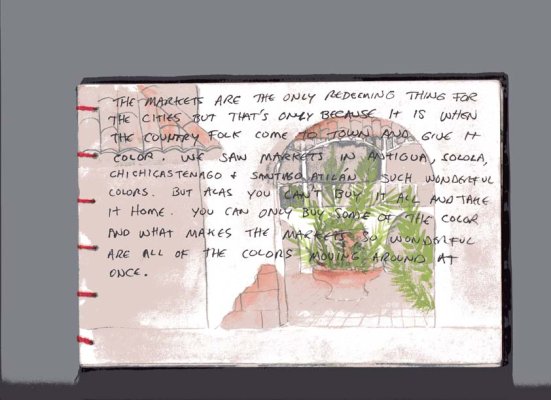 THE MARKETS ARE THE ONLY REDEEMING THING FOR
THE CITIES BUT THAT'S ONLY BECAUSE IT IS WHEN
THE COUNTRY FOLK COME TO TOWN AND GIVE IT
COLOR. WE SAW MARKETS IN ANTIGUA, SOLOLA,
CHICHICASTENAGO & SANTIAGO ATILAN. SUCH WONDERFUL
COLORS. BUT ALAS YOU CAN'T BUY IT ALL AND TAKE
IT HOME. YOU CAN ONLY BUY SOME OF THE COLOR
AND WHAT MAKES THE MARKETS SO WONDERFUL
ARE ALL OF THE COLORS MOVING AROUND AT
ONCE.